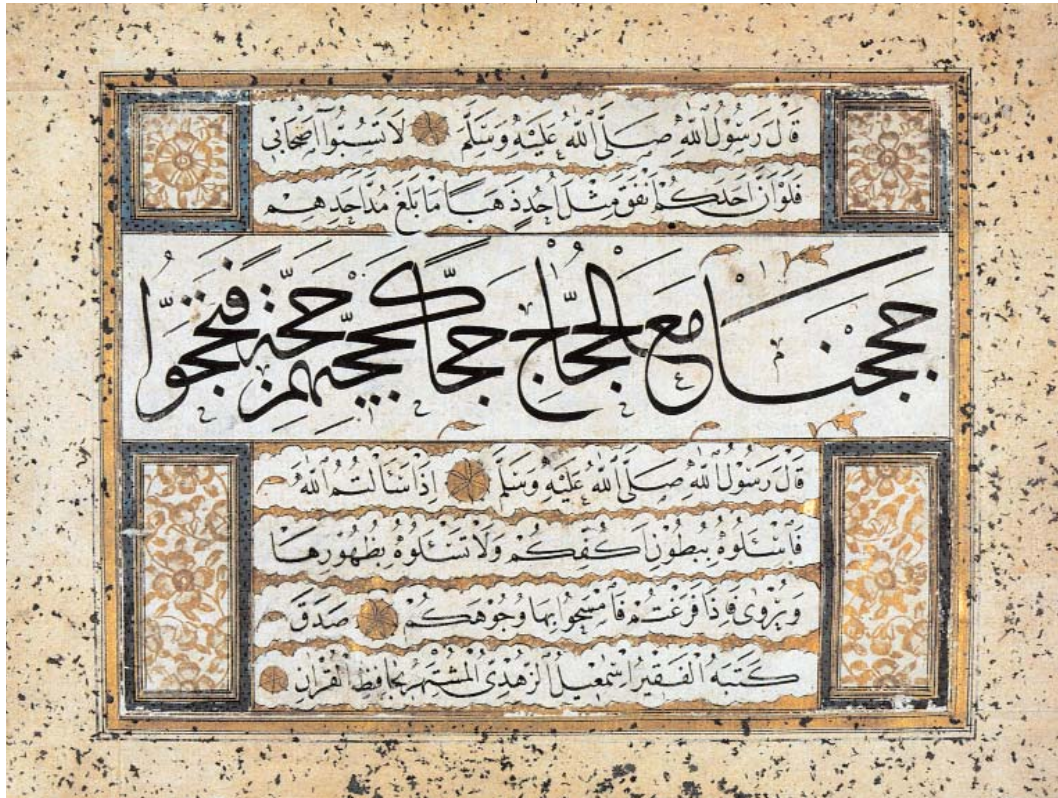 قَالَ رَسُولُ اللهِ صَلَّى اللهُ عَلَيْهِ وَسَلَّمَ لَا تَسُبُّوا اَصْحَابِي
فَلَوْ اَنَّ اَحَدَكُمْ اَنْفَقَ مِثْلَ اُحُدٍ ذَهَبًا مَا بَلَغَ مُدَّ اَحَدِهِمْ
حججنا مع الحجاج حجاً كحجيجهم حجة فتحجوا
قَالَ رَسُولُ اللهِ صَلَّى اللهُ عَلَيْهِ وَسَلَّمَ اِذَا سَئَالْتُمُ اللهَ
فَاسْئَلُوهُ بِبُطُونِ اَكُفِّكُمْ وَلَا تَسْئَلُوهُ بِظُهُورِهَا
وَيُرْوٰى فَاِذَا فَرَغْتُمْ فَامْسَحُوا بِهَا وُجُوهَكُمْ صَدَقَ
كَتَبَهُ الْفَقِيرُ اِسْمٰعِيلُ الزُّهْدِىُّ الْمُشْتَهِرُ بِحَافِظِ الْقُرْاٰنِ